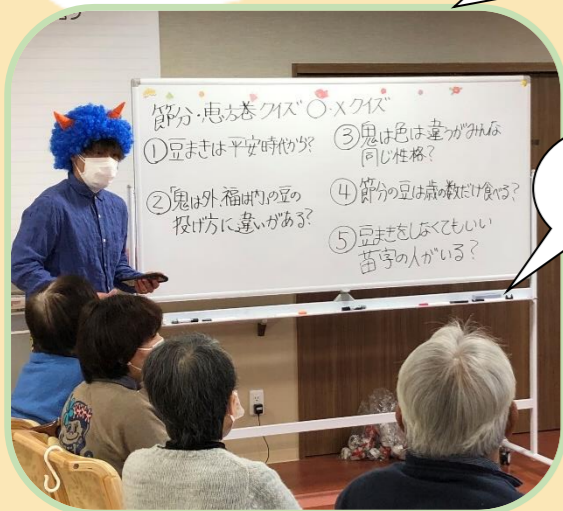 節分・恵方巻クイズ ○・×クイズ
①豆まきは平安時代から?
②「鬼は外、福は内」の豆の
投げ方に違いがある?
③鬼は色は違うがみんな
同じ性格?
④節分の豆は歳の数だけ食べる?
⑤豆まきをしなくてもいい
苗字の人がいる?